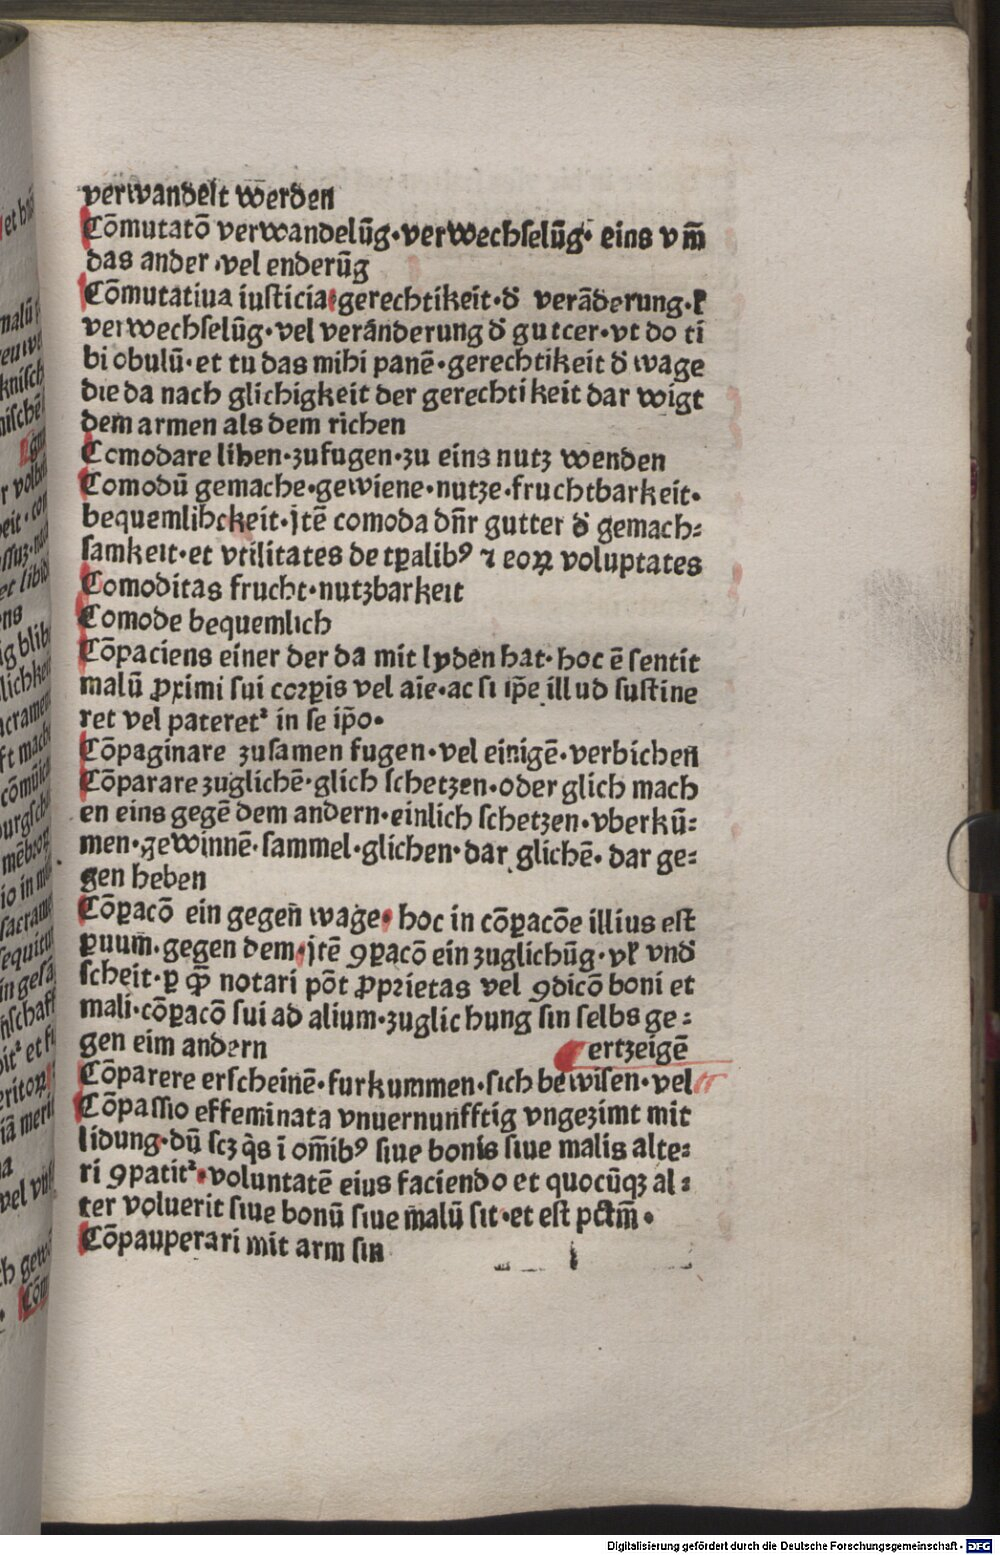 verwandelt werden
Cōmutatō verwandelūg·verwechſelūg· eins vm̄
das ander ·vel enderūg
Cōmutatiua iuſticia·gerechtikeit·ď verāderung·ł
verwechſelūg·vel veränderung ď gutcer·vt do ti
bi obulū·et tu das mihi panē·gerechtikeit ď wage
die da nach glichigkeit der gerechtikeit dar wigt
dem armen als dem richen
Ccmodare lihen·zufugen·zu eins nutz wenden
Comodū gemache·gewiene·nutze·fruchtbarkeit·
bequemlihckeit·jtē comoda dn̄r gutter ď gemach⸗
ſamkeit·et vtilitates de tꝑalibꝰ ⁊ eoꝝ voluptates
Comoditas frucht·nutzbarkeit
Comode bequemlich
Cōpaciens einer der da mit lyden hat·hoc ē ſentit
malū ꝓximi ſui coꝛꝑis vel aīe·ac ſi ip̄e illud ſuſtine
ret vel pateretᷣ in ſe ip̄o·
Cōpaginare zuſamen fugen·vel einigē·verbichen
Cōparare zuglichē·glich ſchetzen·oder glich mach
en eins gegē dem andern·einlich ſchetzen·vberkū⸗
men·gewinnē·ſammel·glichen·dar glichē·dar ge⸗
gen heben
Cōꝑacō ein gegen̄ wage· hoc in cōꝑacōe illius eſt
ꝑuum̄·gegen dem·jtē ꝯꝑacō ein zuglichūg·vł vnď
ſcheit·ꝑ q̄ꝫ notari pōt ꝓpꝛietas vel ꝯdicō boni et
mali·cōꝑacō ſui ad alium·zuglichung ſin ſelbs ge⸗
gen eim andern ertzeigē
Cōparere erſcheinē·furkummen·ſich bewiſen·vel
Cōpaſſio effeminata vnuernunfftig vngezimt mit
lidung·dū ſcꝫ q̇s ī om̄ibꝰ ſiue bonis ſiue malis alte⸗
ri ꝯpatitᷣ·voluntatē eius faciendo et quocūqꝫ al⸗
ter voluerit ſiue bonū ſiue malū ſit·et eſt pctm̄·
Cōpauperari mit arm ſin
Digitalisierung gefördert durch die Deutsche Forschungsgemeinschaft - DFG